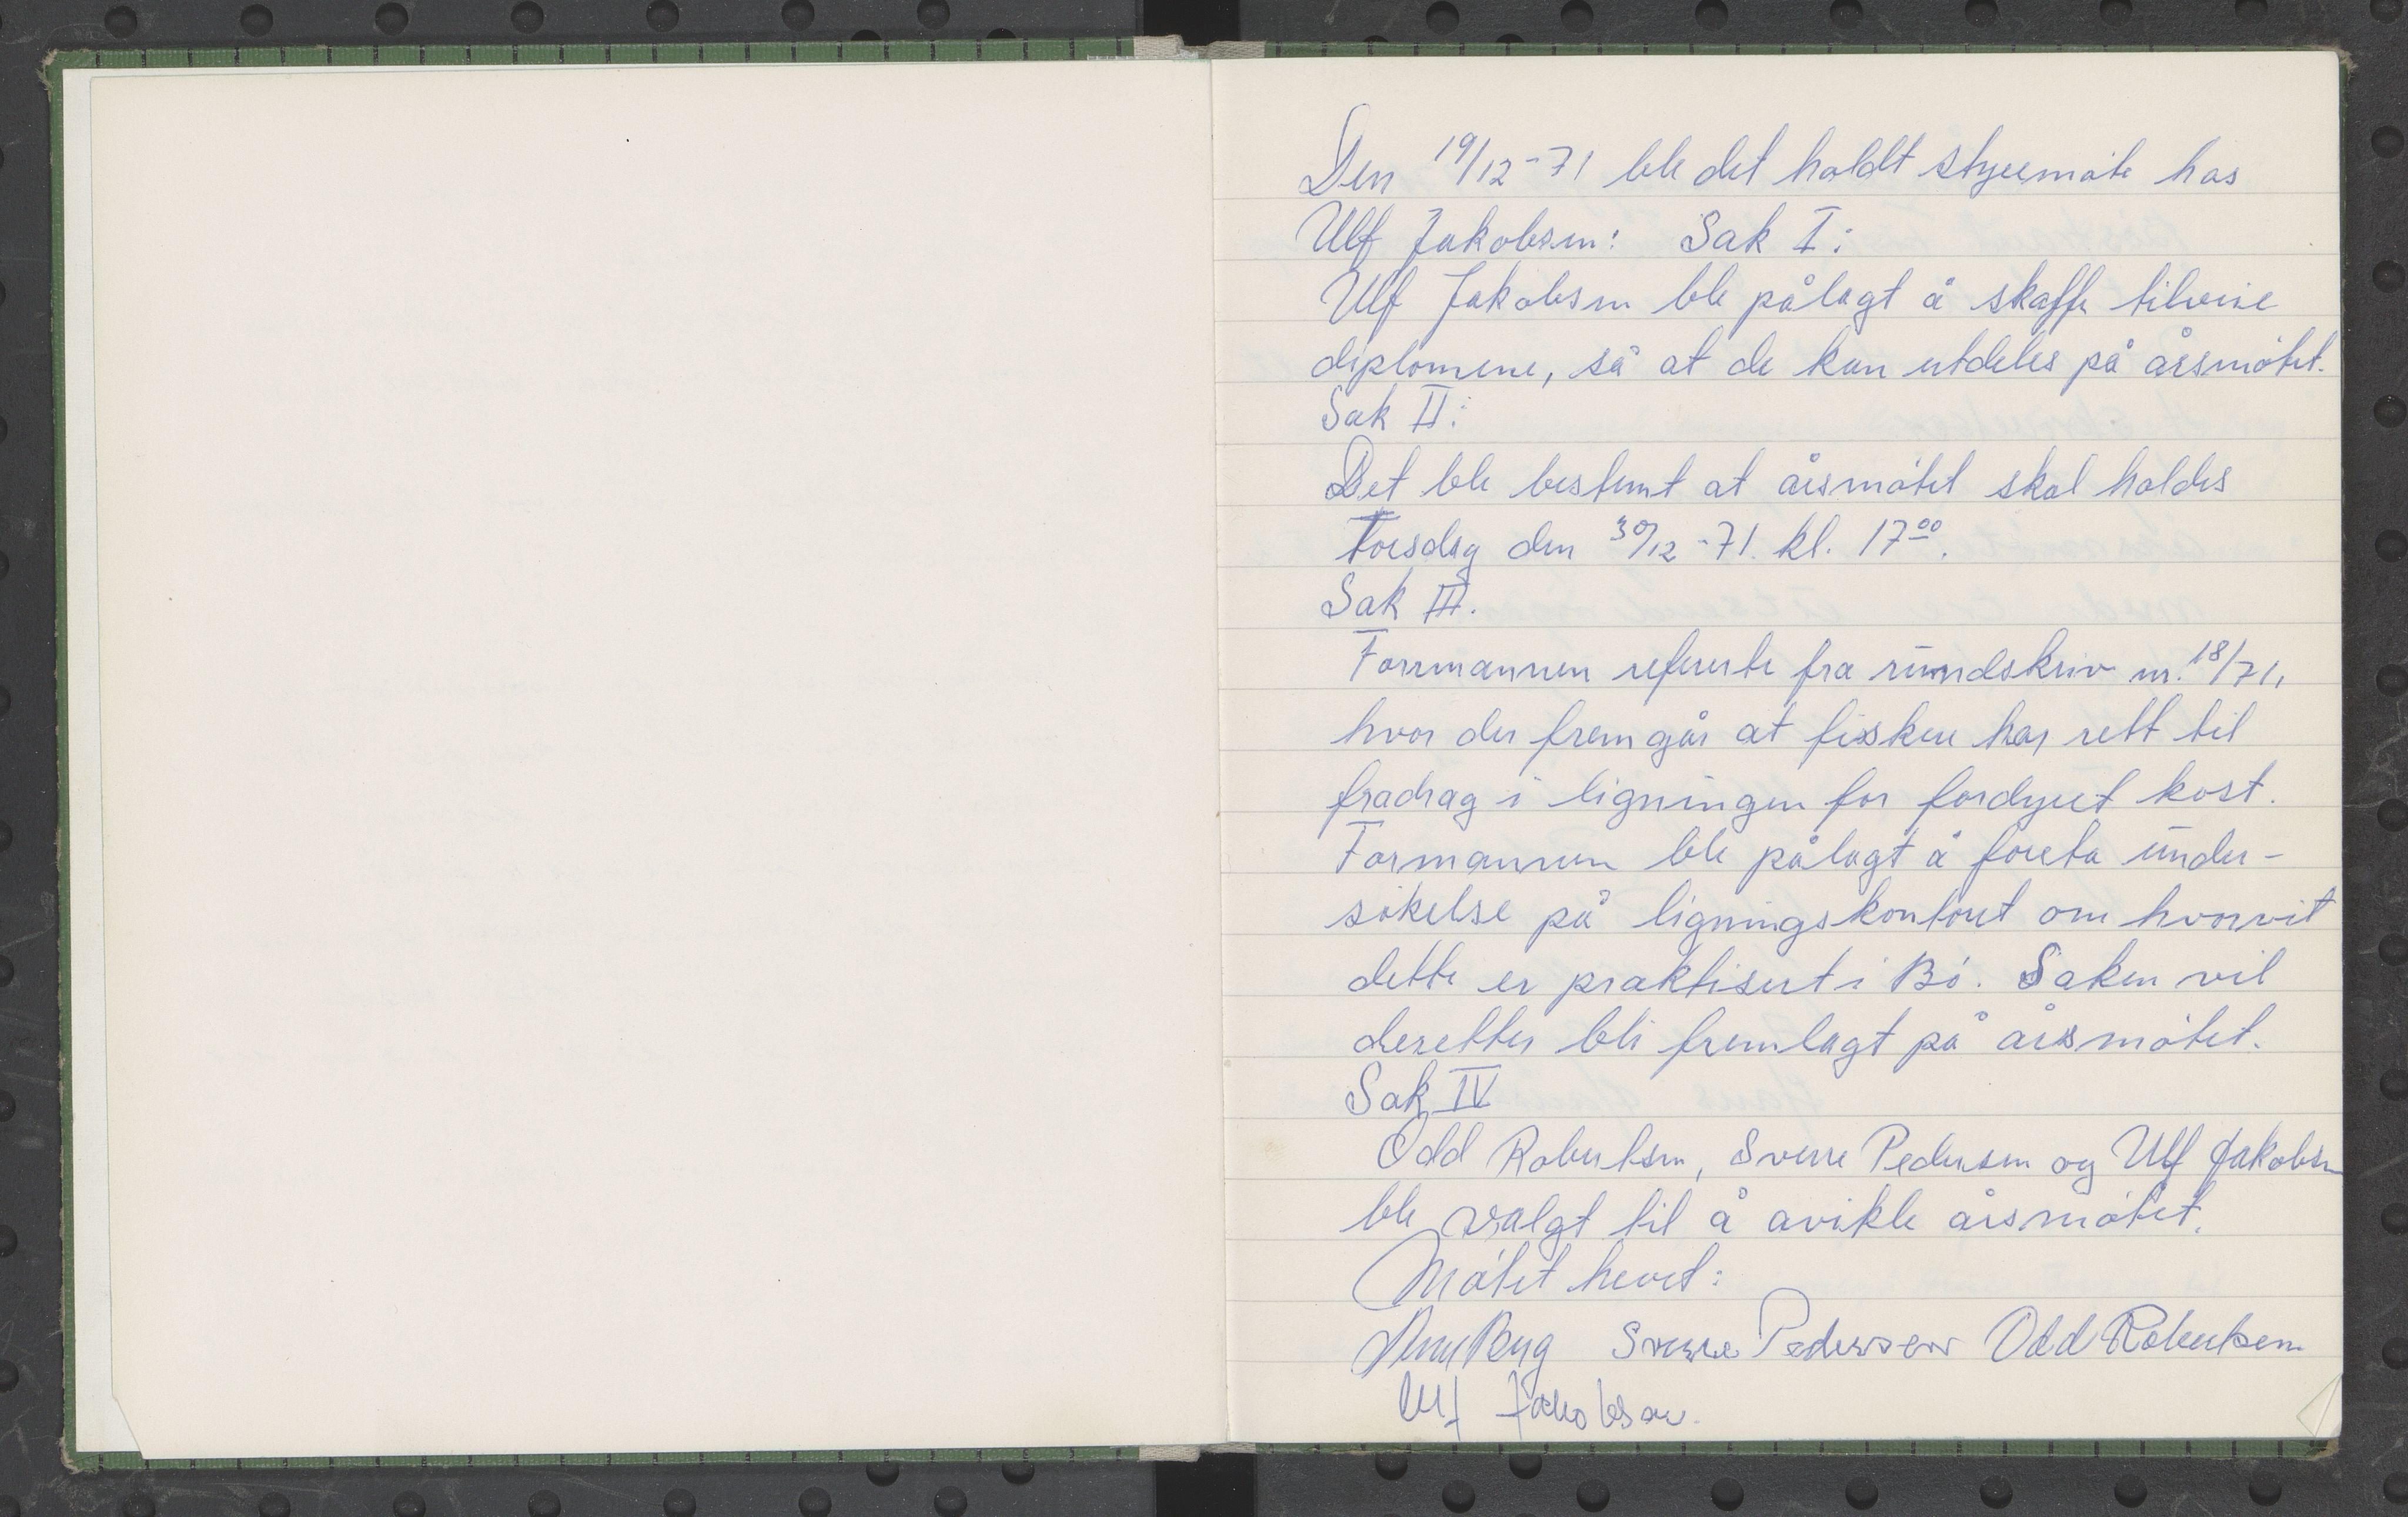 Den 19/12-71 ble det holdt styremöte hos
Ulf Jakobsen: Sak I:
Ulf Jakobsen ble pålagt å skaffe tilveie
diplomene, så at de kan utdeles på årsmötet.
Sak II:
Det ble bestemt at årsmötet skal holdes
Torsdag den 30/12-71. kl. 1700.
Sak III.
Forrmannen refererte fra rundskriv nr. 18/71,
hvor der fremgår at fiskere har rett til
fradrag i ligningen for fordyret kost.
Formannen ble pålagt å foreta under-
sökelse på ligningskontoret om hvorvit
dette er praktisert i Bö. Saken vil
deretter bli fremlagt på årsmötet.
Sak IV
Odd Robertsen, Sverre Pedersen og Ulf Jakobsen
ble valgt til å avikle årsmötet.
Mötet hevet:
Berg Sverre Pedersen Odd Robertsen
Ulf Jakobsen.